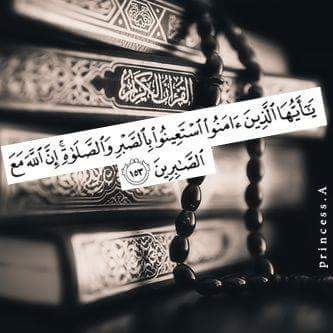 القرآن الكريم
يَـٰٓأَيُّهَا ٱلَّذِينَ ءَامَنُوا۟ ٱسْتَعِينُوا۟ بِٱلصَّبْرِ وَٱلصَّلَوٰةِ ۚ إِنَّ ٱللَّهَ مَعَ
ٱلصَّـٰبِرِينَ ١٥٣
princess.A